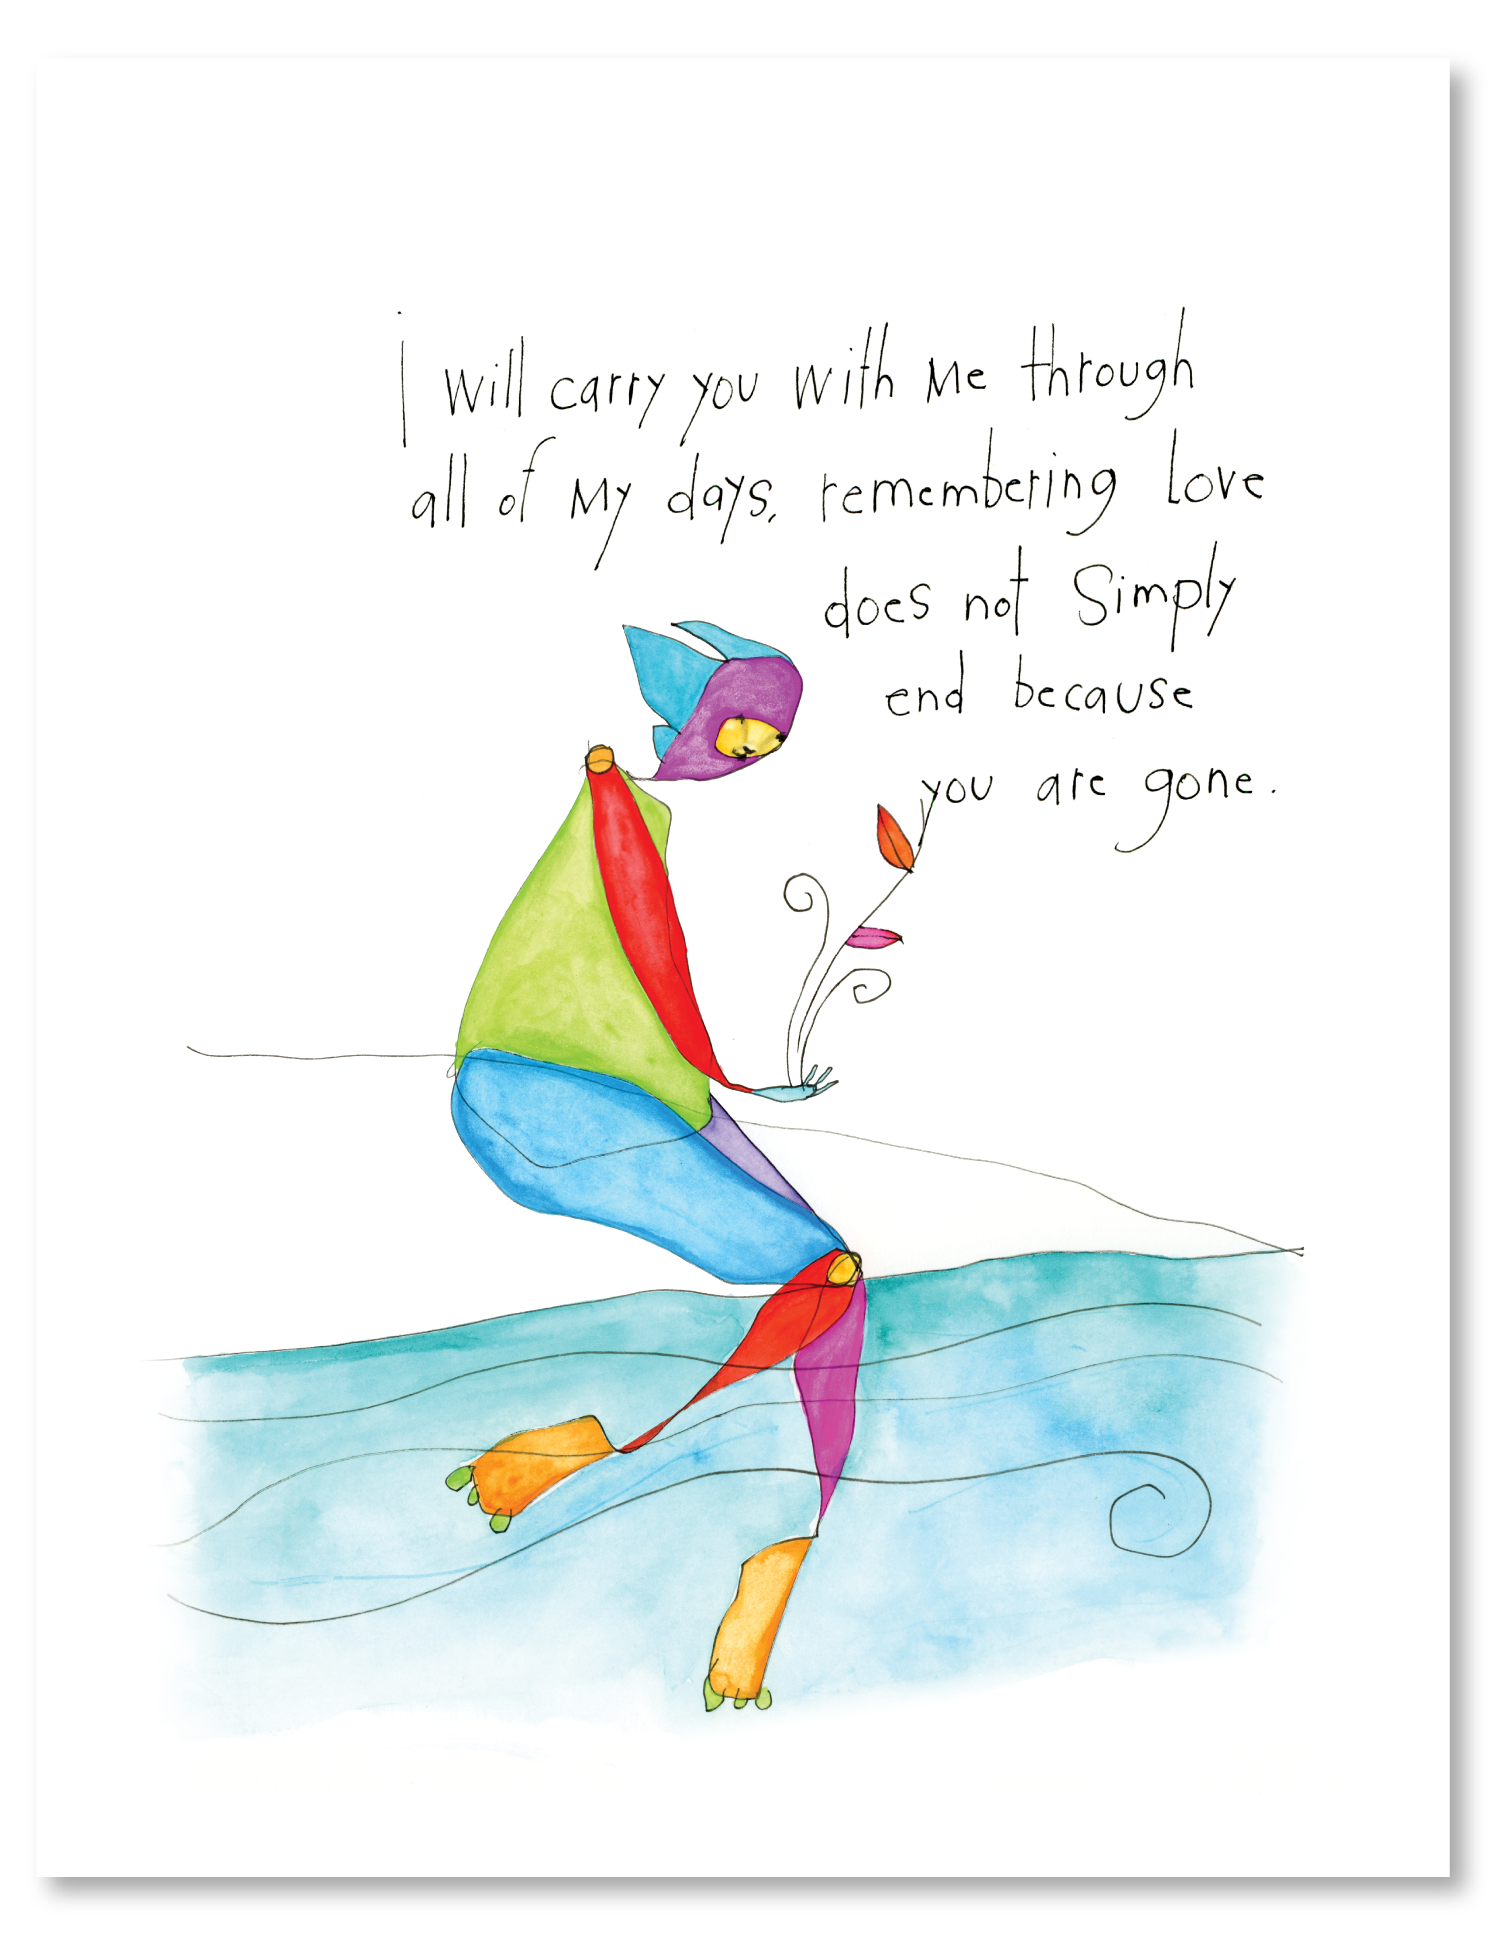 i will carry you with me through
all of my days, remembering love
does not simply
end because
you are gone.